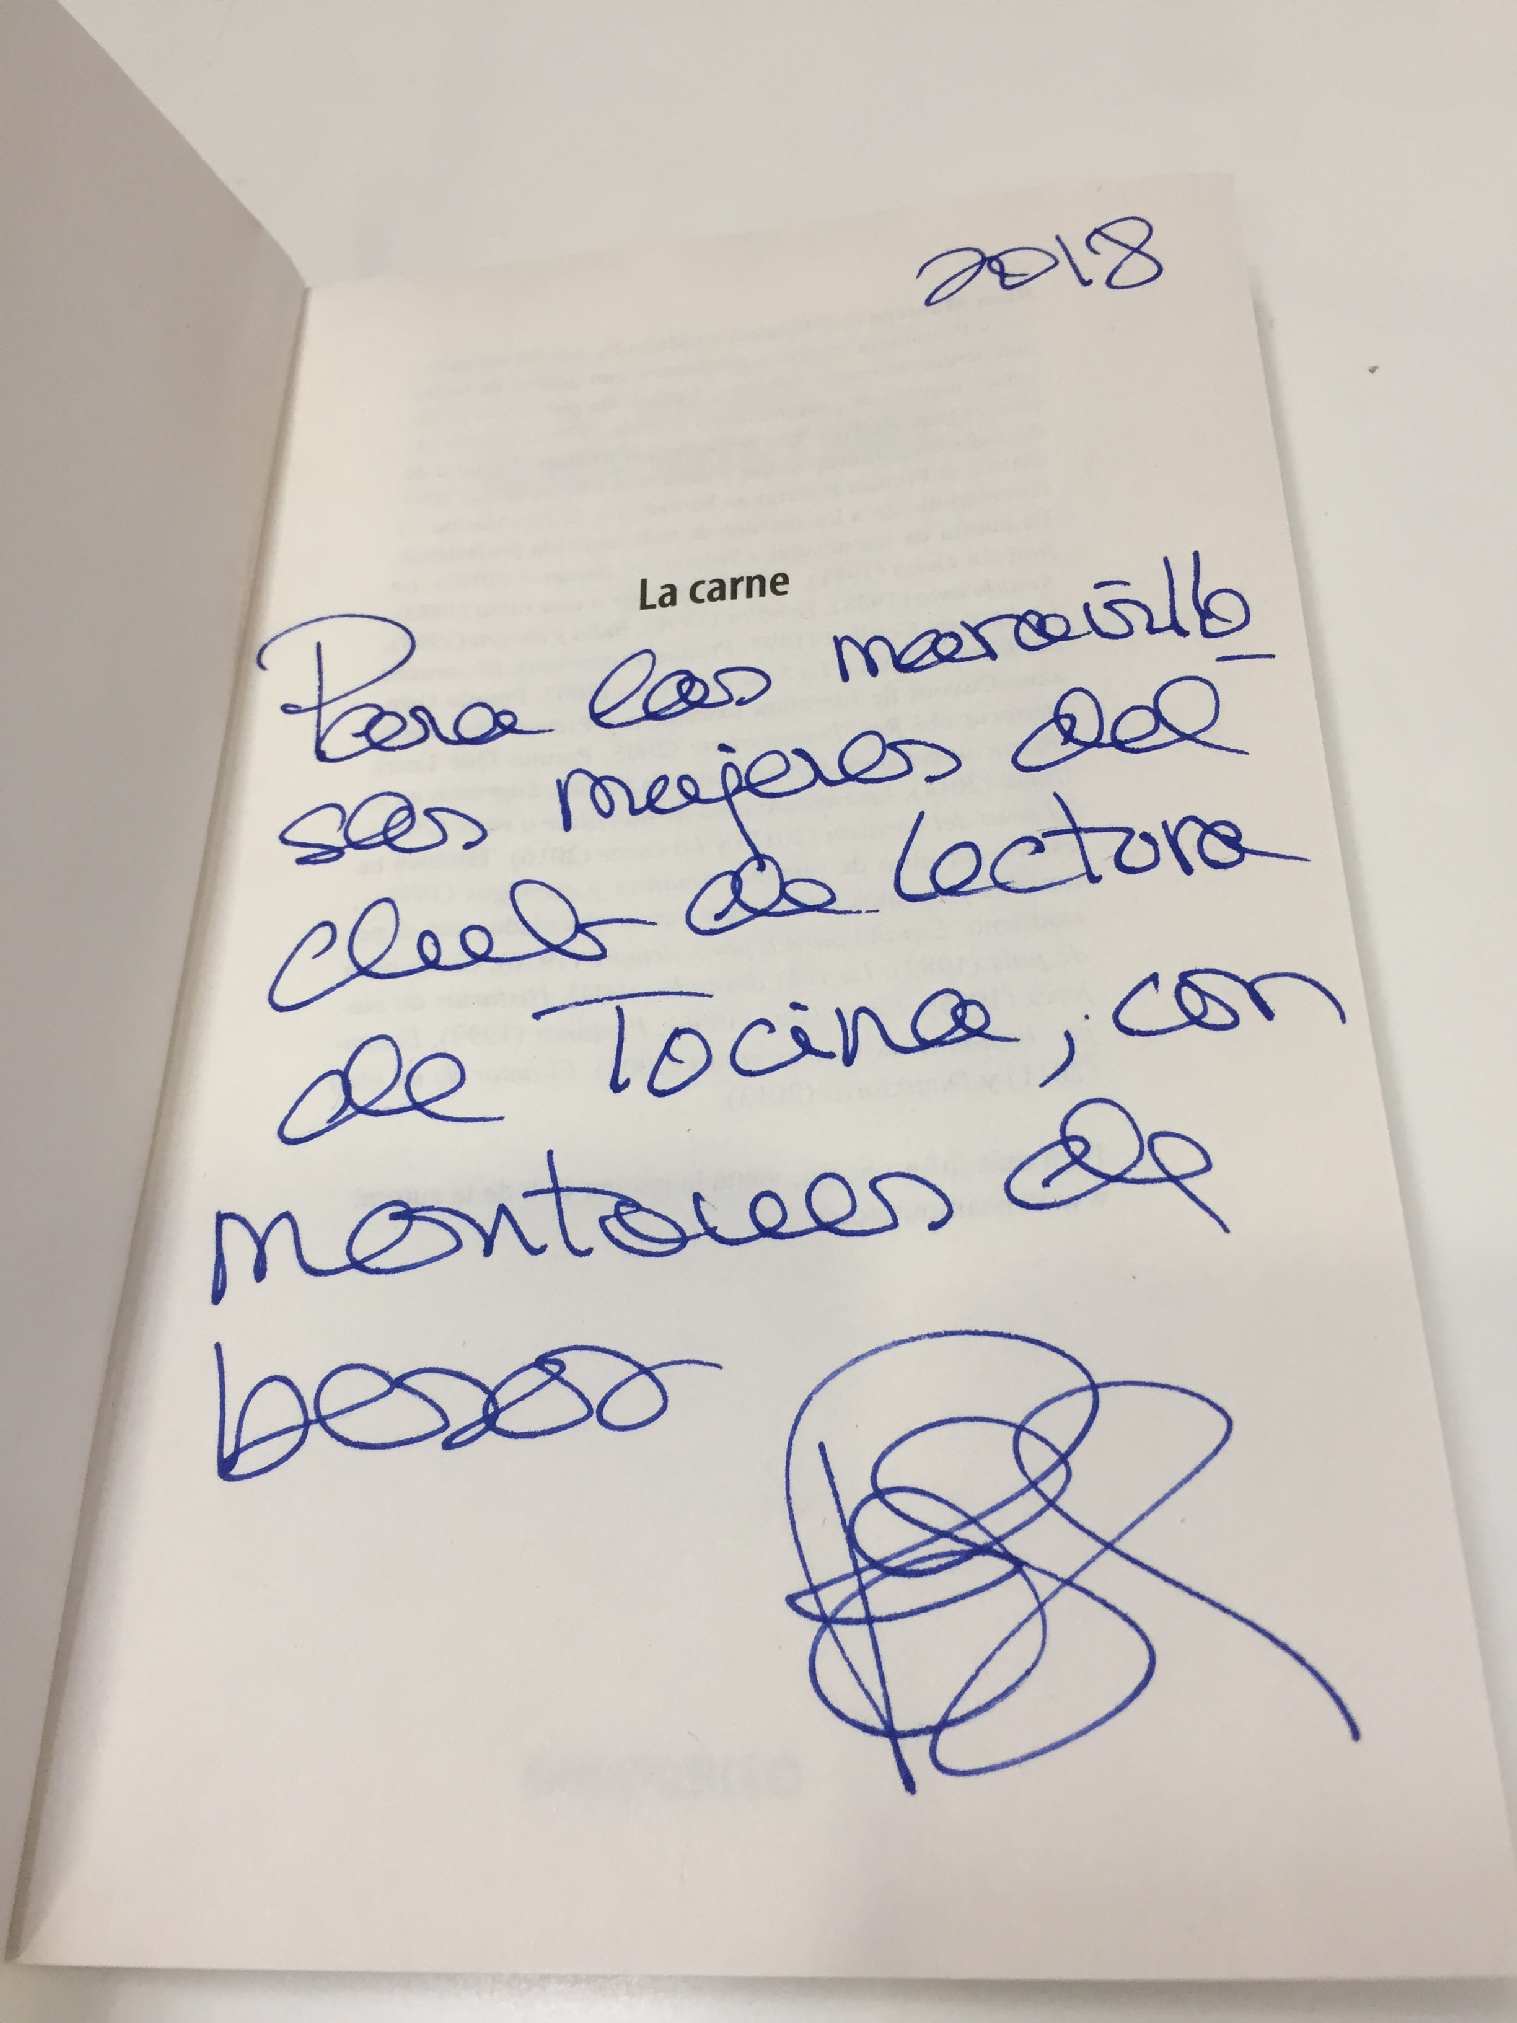 2018
La carne
Para las maravillo_
sas mujeres del
club de lectura
de Tocina, con
montones de
besos